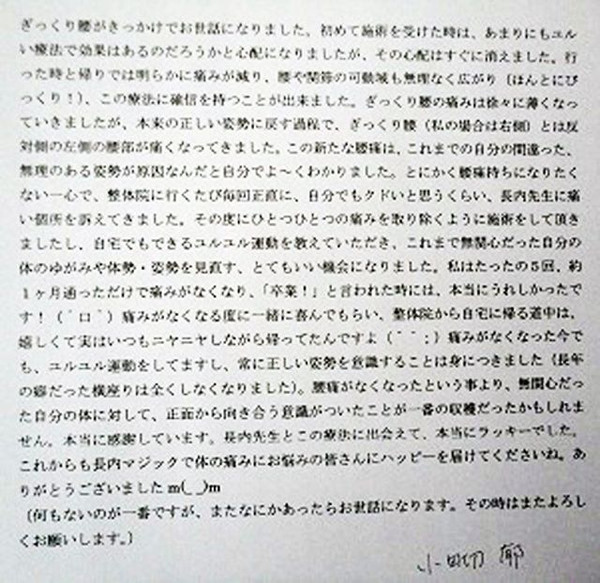 ぎっくり腰がきっかけでお世話になりました。初めて施術を受けた時は、あまりにもユル
い療法で効果はあるのだろうかと心配になりましたが、その心配はすぐに消えました。行
った時と帰りでは明らかに痛みが減り、腰や関節の可動域も無理なく広がり（ほんとにび
っくり！）、この療法に確信を持つことが出来ました。ぎっくり腰の痛みは徐々に薄くなっ
ていきましたが、本来の正しい姿勢に戻す過程で、ぎっくり腰（私の場合は右側）とは反
対側の左側の腰部が痛くなってきました。この新たな腰痛は、これまでの自分の間違った、
無理のある姿勢が原因なんだと自分でよ～くわかりました。とにかく腰痛持ちになりたく
ない一心で、整体院に行くたび毎回正直に、自分でもクドいと思うくらい、長内先生に痛
い個所を訴えてきました。その度にひとつひとつの痛みを取り除くように施術をして頂き
ましたし、自宅でもできるユルユル運動を教えていただき、これまで無関心だった自分の
体のゆがみや体勢・姿勢を見直す、とてもいい機会になりました。私はたったの５回、約
１ヶ月通っただけで痛みがなくなり、「卒業！」と言われた時には、本当にうれしかったで
す！（゜ロ゜）痛みがなくなる度に一緒に喜んでもらい、整体院から自宅に帰る道中は、
嬉しくて実はいつもニヤニヤしながら帰ってたんですよ（｀｀；）痛みがなくなった今で
も、ユルユル運動をしてますし、常に正しい姿勢を意識することは身につきました（長年
の癖だった横座りは全くしなくなりました）。腰痛がなくなったという事より、無関心だっ
た自分の体に対して、正面から向き合う意識がついたことが一番の収穫だったかもしれま
せん。本当に感謝しています。長内先生とこの療法に出会えて、本当にラッキーでした。
これからも長内マジックで体の痛みにお悩みの皆さんにハッピーを届けてくださいね。あ
りがとうございました m(_ _)m
（何もないのが一番ですが、またなにかあったらお世話になります。その時はまたよろし
くお願いします。）
小田切 郁